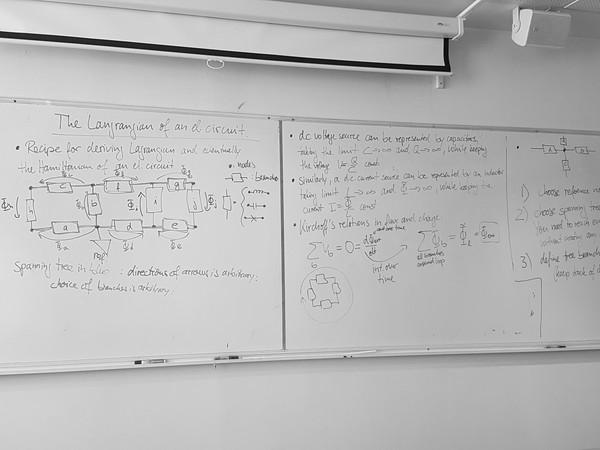 The Langrangian of an el circuit
• Recipe for deriving Lagrangian and eventually
the Hamiltonian of an el. circuit
• : nodes
: branches
c f g
b i j
a d e
Φa Φd Φe
ref
Spanning tree in blue : directions of arrows is arbitrary.
choice of branches is arbitrary.
• dc voltage source can be represented by capacitors,
taking the limit C→∞ and Q→∞, while keeping
the voltage V= Q/C const
• Similarly, a dc current source can be represented by an inductor
taking limit L→∞ and Φ→∞, while keeping the
current I = Φ/L const
• Kirchoff's relations in flux and charge
∑b Vb = 0 =
int. over
time
∑ Φb =
all branches
around loop
1) choose reference
2) choose spanning tree
You need to reach
without
3) define tree branches
(keep track of